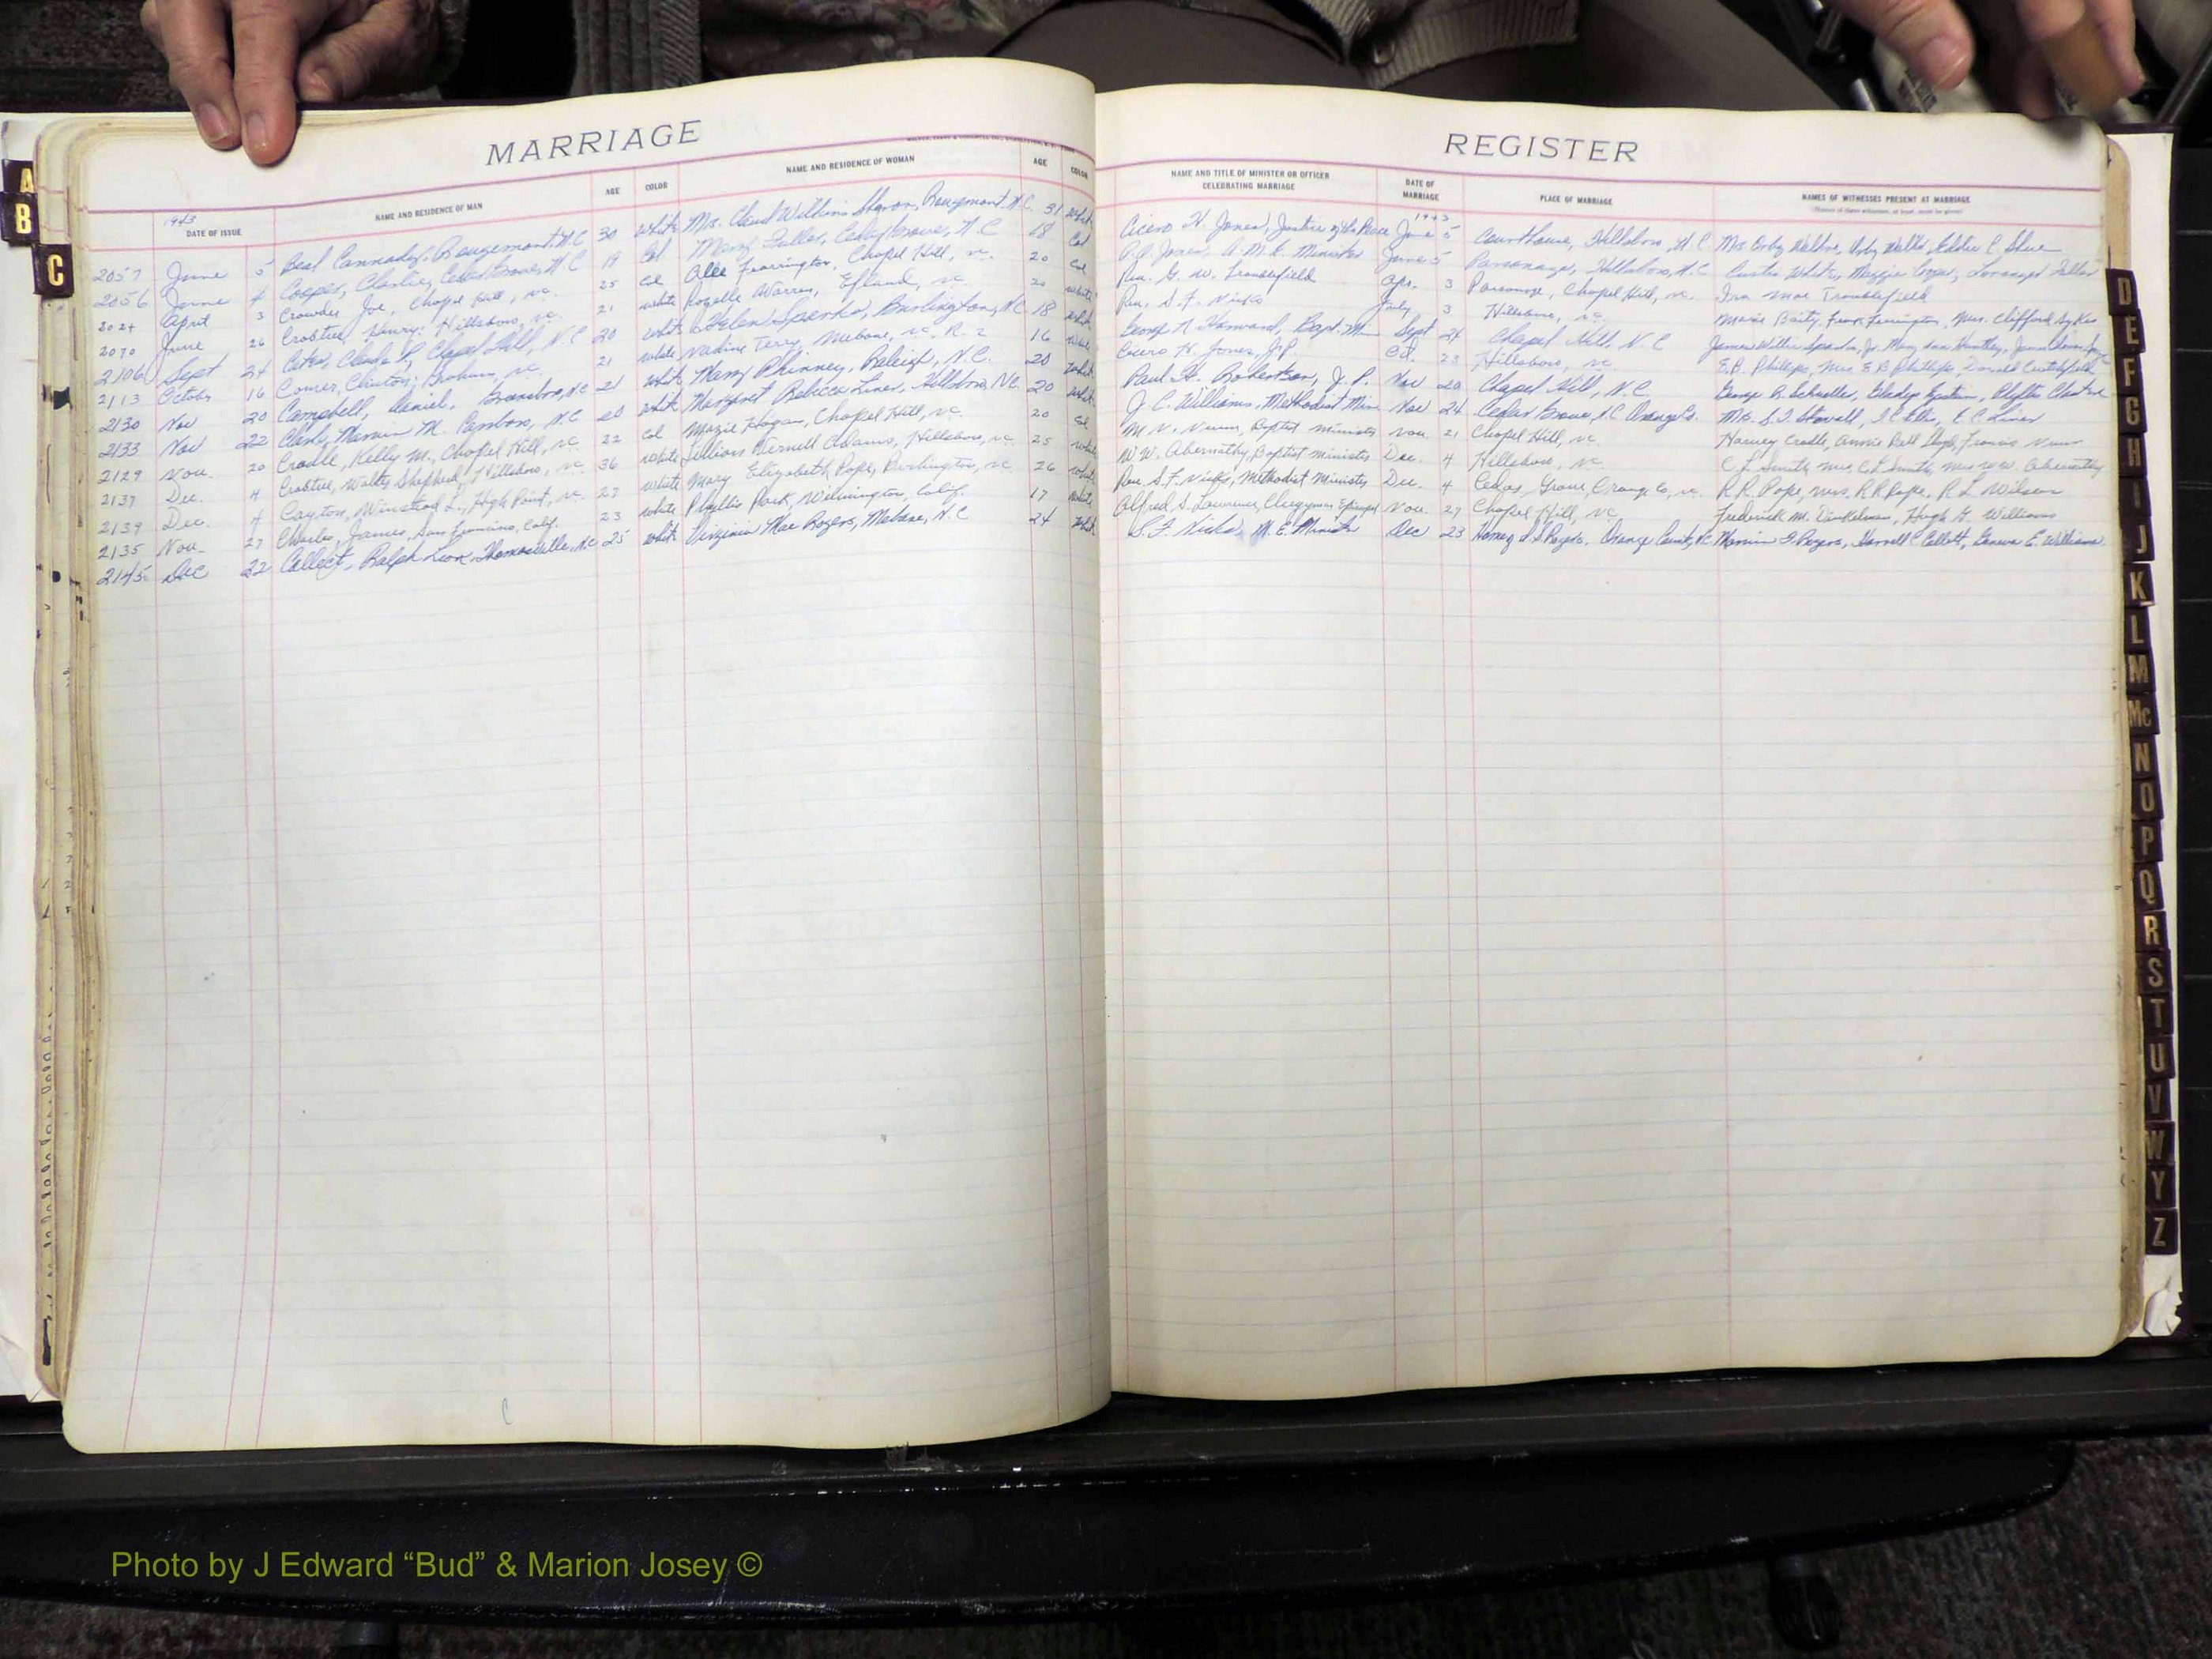 MARRIAGE
REGISTER
1943
DATE OF ISSUE
NAME AND RESIDENCE OF MAN
AGE
COLOR
NAME AND RESIDENCE OF WOMAN
AGE
COLOR
NAME AND TITLE OF MINISTER OR OFFICER
CELEBRATING MARRIAGE
DATE OF
MARRIAGE
1943
PLACE OF MARRIAGE
NAMES OF WITNESSES PRESENT AT MARRIAGE
2057 June 5 Beal Cannady, Rougemont, N.C 30 white Mrs. Claud Wilkins Rougemont N.C. 31 Cicero H. Jones, Justice of the Peace June 5 Courthouse, Hillsboro, N.C. Mrs Eddie C.
2056 June 4 Cooper, Charlie, Cedar Grove, N.C 19 Col Mary Fuller, Cedar Grove, N.C 18 Col Jones, A.M.E. Minister June 5 Parsonage, Hillsboro, N.C. Curtis White, Maggie Cooper, Fuller
2024 April 3 Crowder Joe, Chapel Hill, nc. 25 Col Farrington, Chapel Hill, nc. 20 Col Rev. G. W. Troublefield Apr. 3 Parsonage, Chapel Hill, nc. Ina Mae Troublefield
2070 June 26 Crabtree, Henry, Hillsboro, nc. 21 white Rozelle Warren, Efland, nc 20 white Rev. S. F. Nicks July 3 Hillsboro, nc. Marie Baity, Farrington, Mrs. Clifford Sykes
2106 Sept 24 Cates, Clyde R, Chapel Hill, N.C 20 white Helen Sparks, Burlington, N.C 18 white George N. Harward, Bapt. Min Sept 24 Chapel Hill, N.C James Willie Sparks, Jr.
2113 October 16 Comer, Clinton, nc 21 white Nadine Terry, Mebane, nc. R. 2 16 white Cicero H. Jones, J.P. Oct. 23 Hillsboro, nc. E.B. Phillips, Mrs. E B Phillips, Donald Crutchfield
2130 Nov 20 Campbell, Daniel, N.C 21 white Mary Phinney, Raleigh, N.C. 20 white Paul H. Robertson, J.P. Nov 20 Chapel Hill, N.C. George
2133 Nov 22 Clark, Marvin M. Roxboro, N.C 20 white Margaret Rebecca Liner, Hillsboro, N.C. 20 white J. C. Williams, Methodist Min Nov 24 Cedar Grove N.C Orange Co. Mrs. S.T. Stovall, E C Liner
2129 Nov. 20 Cradle, Kelly M., Chapel Hill, nc 22 col Mozie Hogan, Chapel Hill, nc. 20 col Baptist minister Nov. 21 Chapel Hill, nc. Harvey Cradle, Annie Bell
2137 Dec. 4 Crabtree, Walter Shepherd, Hillsboro, nc 36 white Lillian Vernell Adams, Hillsboro, nc. 25 white W W. Abernathy, Baptist minister Dec. 4 Hillsboro, nc. C L Smith, Mrs C L Smith, Mrs W W. Abernathy
2139 Dec. 4 Cayton, Winstead L., High Point, nc. 27 white Mary Elizabeth Pope, Burlington, nc. 26 white Rev. S.F. Nicks, Methodist Minister Dec. 4 Cedar Grove, Orange Co, nc. R.R. Pope, Mrs. R R Pope, R L Wilson
2135 Nov. 27 Charles, James, San Francisco, Calif. 23 white Phyllis Park, Wilmington, Calif. 17 white Alfred S. Lawrence, Clergyman Episcopal Nov. 27 Chapel Hill, nc Frederick M. Hugh G. Williams
2145 Dec 22 Collett, Ralph Leon, Thomasville, N.C 25 white Virginia Mae Rogers, Mebane, N.C 24 white S. F. Nicks, M. E. Minister Dec 23 Home of Rogers, Orange County, N.C Marvin Rogers, Harrell C. Collett, Geneva E. Williams
A
B
C
D
E
F
G
H
I
J
K
L
M
Mc
N
O
P
Q
R
S
T
U
V
W
Y
Z
C
Photo by J Edward “Bud” & Marion Josey ©